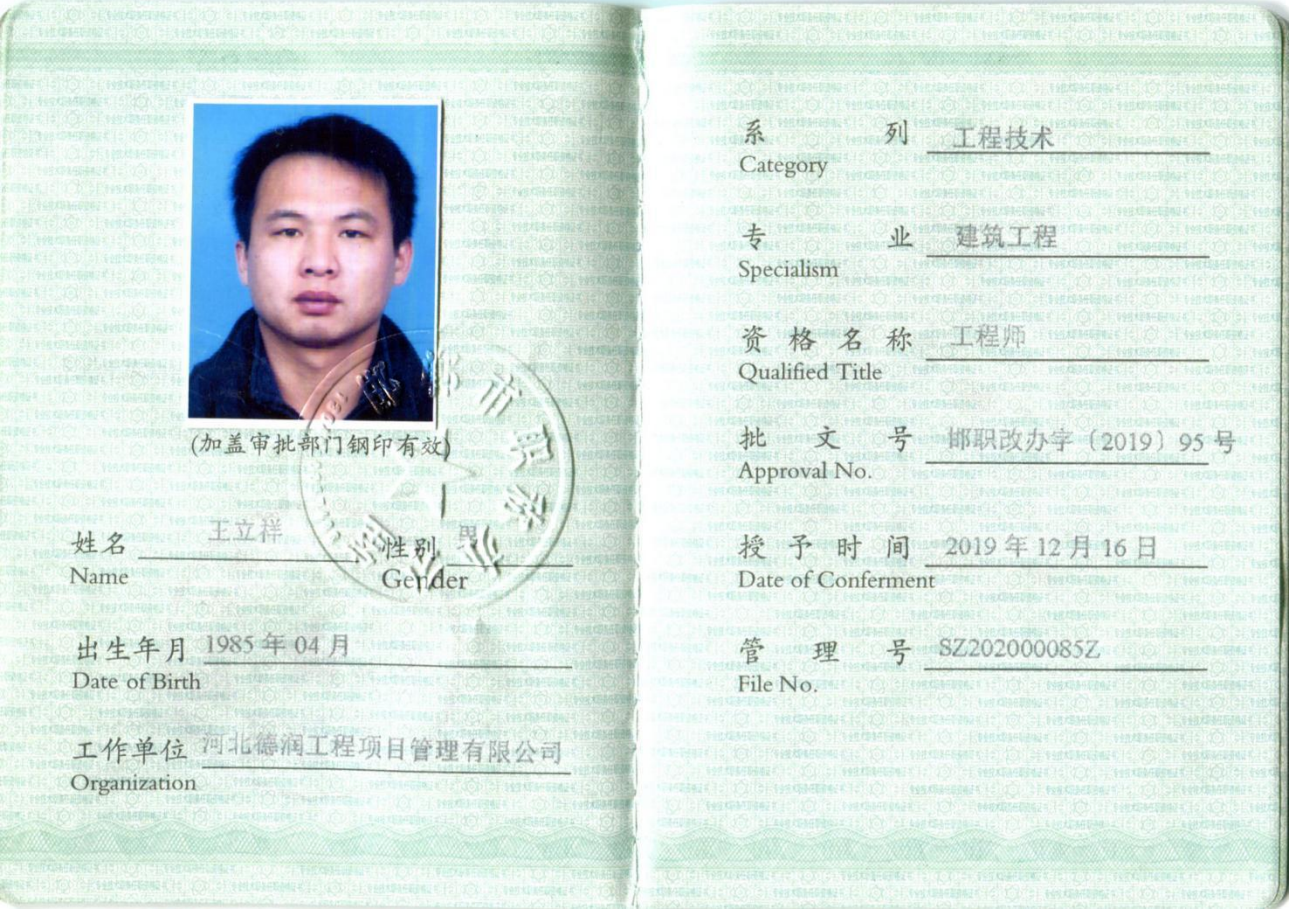 (加盖审批部门钢印有效)
姓名 王立祥 性别 男
Name Gender
出生年月 1985 年 04 月
Date of Birth
工作单位 河北德润工程项目管理有限公司
Organization
系列 工程技术
Category
专业 建筑工程
Specialism
资格名称 工程师
Qualified Title
批文号 邯职改办字〔2019〕95 号
Approval No.
授予时间 2019 年 12 月 16 日
Date of Conferment
管理号 SZ202000085Z
File No.